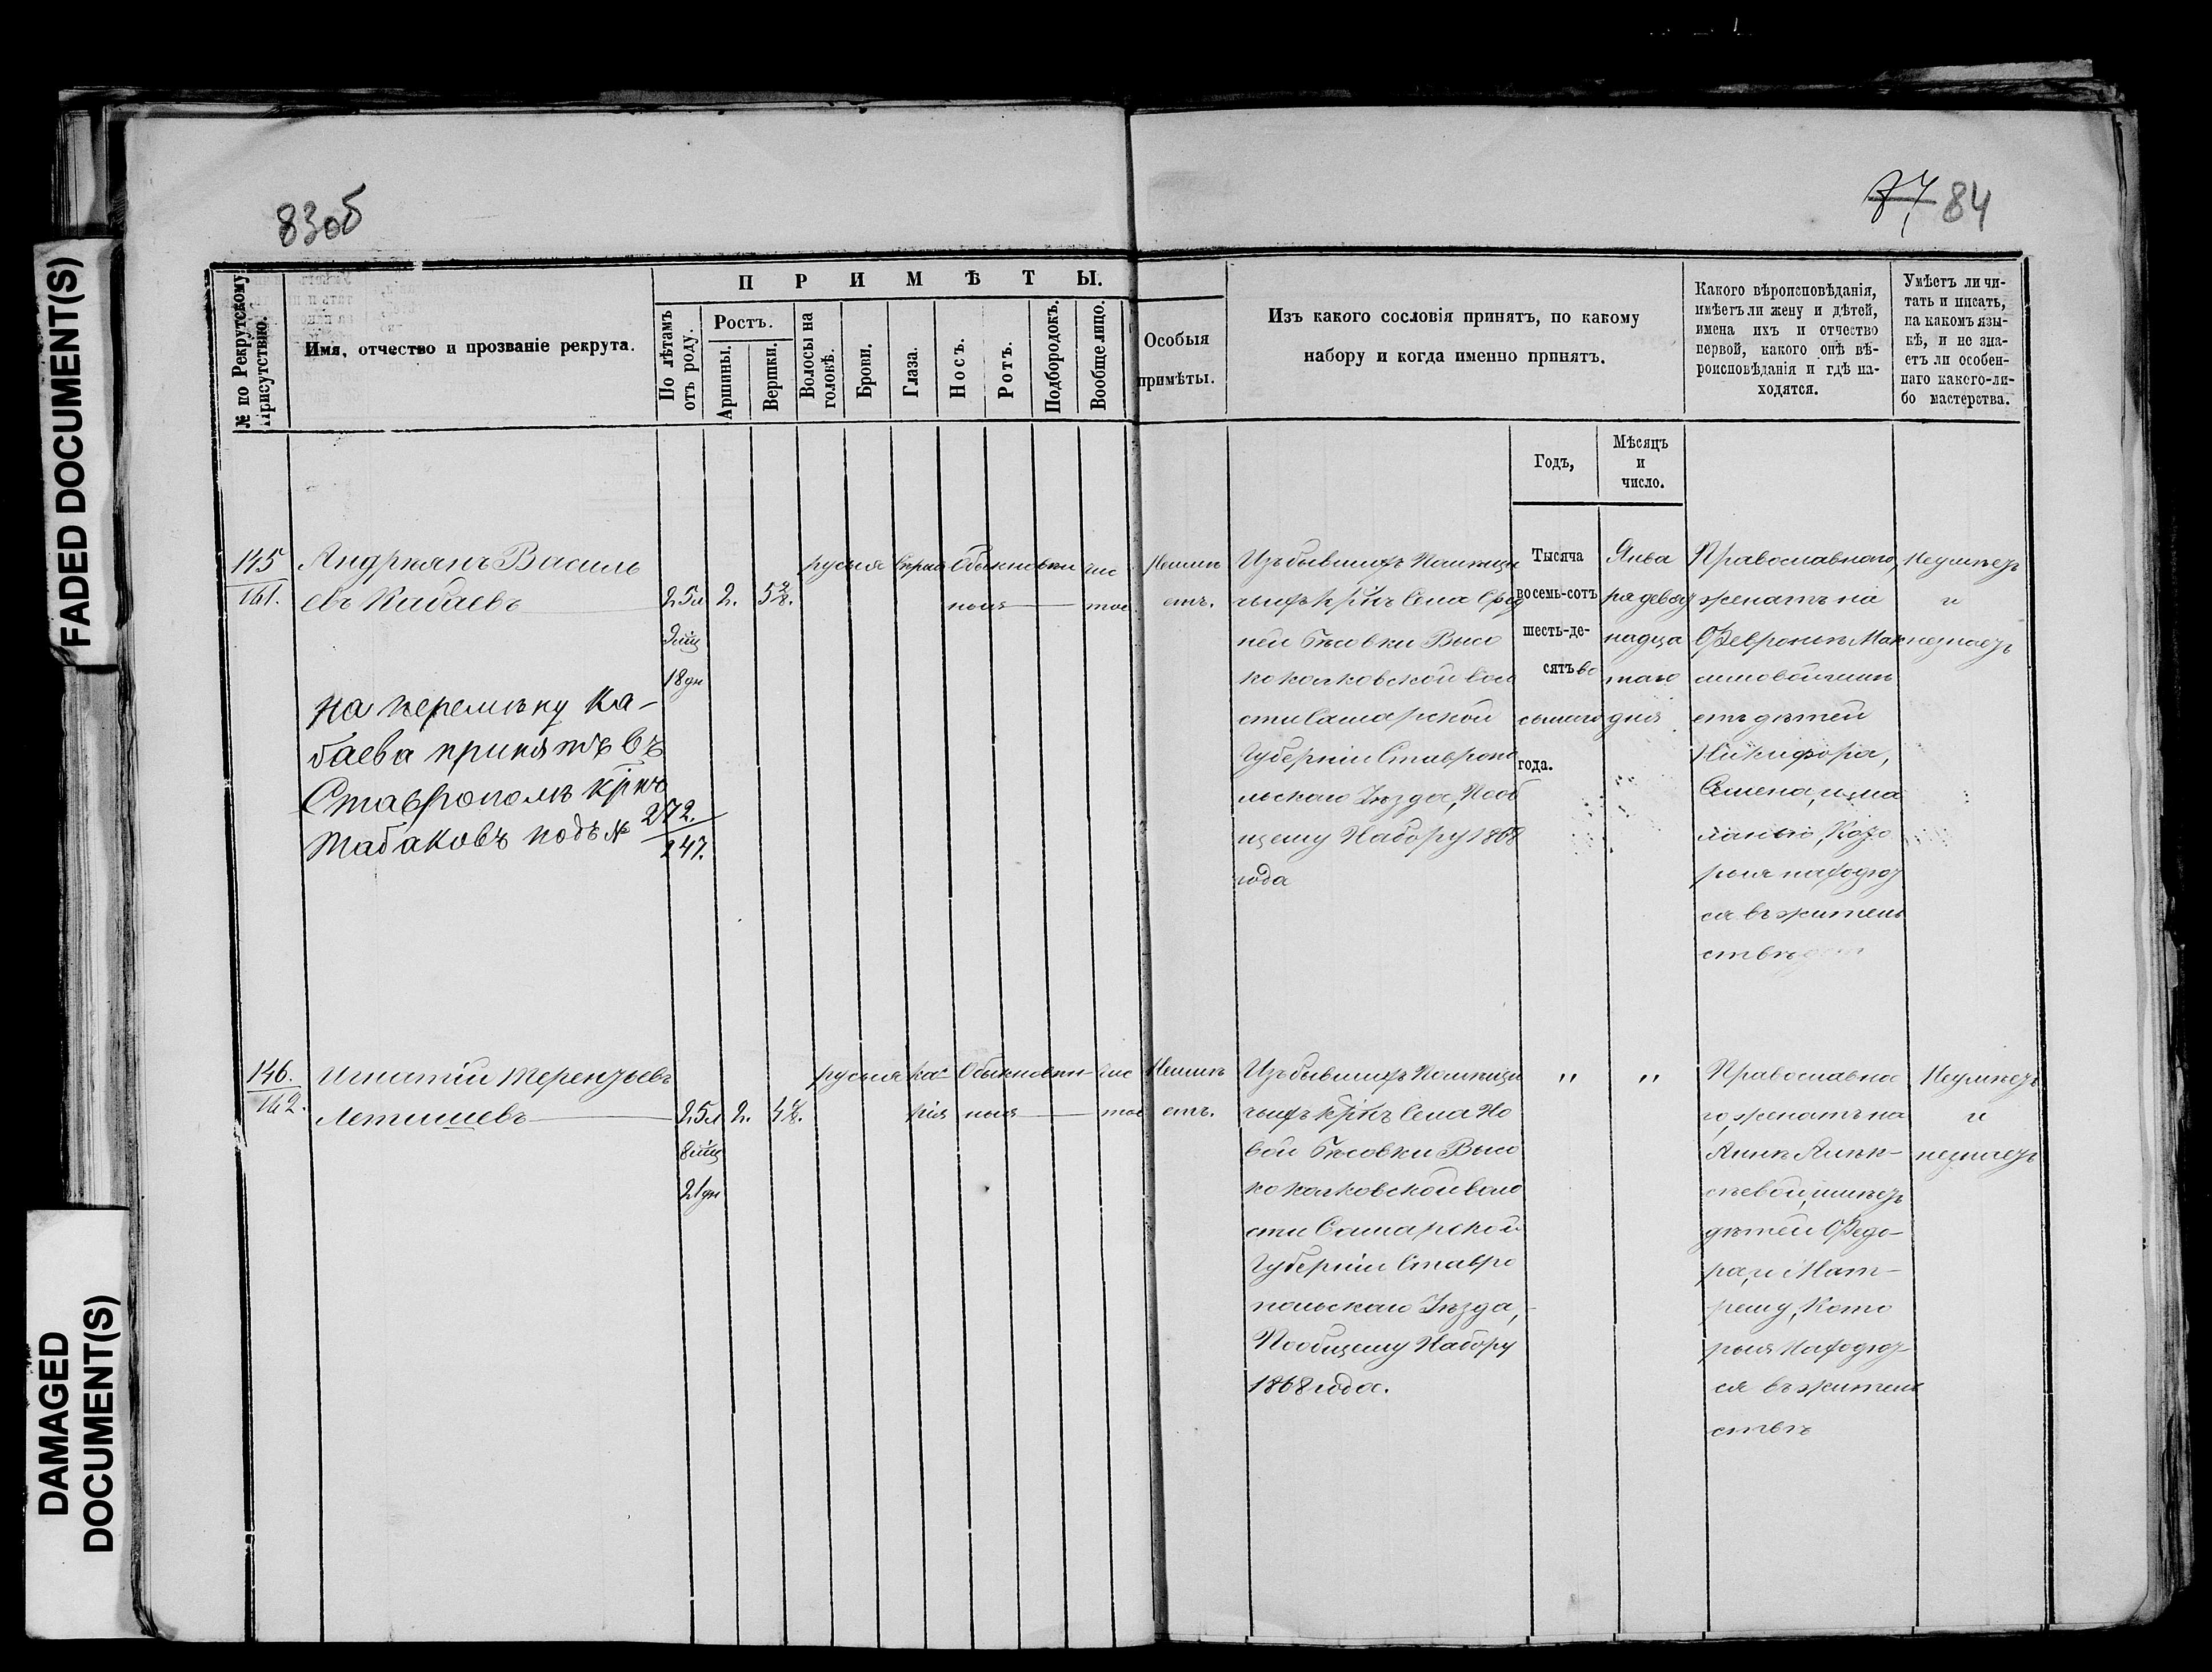 83об
84
FADED DOCUMENT(S)
DAMAGED
DOCUMENT(S)
№ по Рекрутскому
Присутствію.
Имя, отчество и прозваніе рекрута.
ПРИМѢТЫ.
По лѣтамъ
отъ роду.
Ростъ.
Аршины.
Вершки.
Волосы на
головѣ.
Брови.
Глаза.
Носъ.
Ротъ.
Подбородокъ.
Вообще лицо.
Особыя
примѣты.
Изъ какого сословія принятъ, по какому
набору и когда именно принятъ.
Годъ,
Мѣсяцъ
и
число.
Какого вѣроисповѣданія,
имѣетъ ли жену и дѣтей,
имена ихъ и отчество
первой, какого онѣ вѣ-
роисповѣданія и гдѣ на-
ходятся.
Умѣетъ ли чи-
тать и писать,
на какомъ язы-
кѣ, и не зна-
етъ ли особен-
наго какого-ли-
бо мастерства.
145
141.
Андреянъ Василь
евъ Кабаевъ
25 л
9 мц
18 дн
2.
5 2/8.
русыя
сѣрыя
Обыкновен
ныя
чис
тое
Неимѣ
етъ.
Изъ бывшихъ Помѣщи
чьихъ крнъ Села Сред
ней Бѣсовки Высо
ко колковской воло
сти Самарской
Губерніи Ставропо
льскаго Уѣзда, Пооб
щему Набору 1868
года
Тысяча
восемь-сотъ
шесть-де-
сятъ во
сьмаго
года.
Янва
ря девят
надца
таго
дня
Православнаго,
женатъ на
Февроніи Мак
симовой имѣ
етъ дѣтей
Никифора,
Семена, и ма
ланью, Кото
рыя находят
ся въ житель
ствѣ
Неумѣетъ
и
незнаетъ
На перемѣну Ка-
баева принятъ въ
Ставрополѣ крнъ
Табаковъ подъ №
272.
147.
146.
142.
Игнатій Терентьевъ
Летяшевъ
25 л
8 мц
21 дн
2.
4 /8.
русыя
ка
рія
Обыкновен
ныя
чис
тое
Неимѣ
етъ.
Изъ бывшихъ Помѣщи
чьихъ крнъ Села Но
вой Бѣсовки Высо
ко колковской воло
сти Самарской
Губерніи Ставро
польскаго Уѣзда,
Пообщему Набору
1868 года.
"
"
Православна
го, женатъ на
Аннѣ Алек-
сѣевой, имѣетъ
дѣтей Федо-
ра, и Мат-
рену, Кото
рыя Находят
ся въ житель
ствѣ
Неумѣетъ
и
незнаетъ